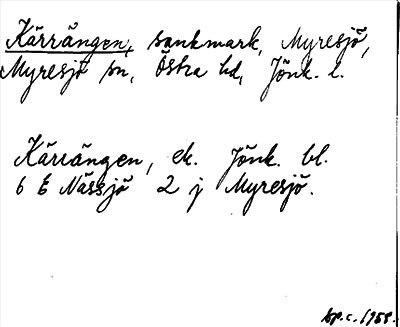 Kärrängen, sankmark, Myresjö,
Myresjö sn, Östra hd, Jönk. l.
Kärrängen, ek. Jönk. bl.
6 E Nässjö 2 j Myresjö.
sp.c. 1955.